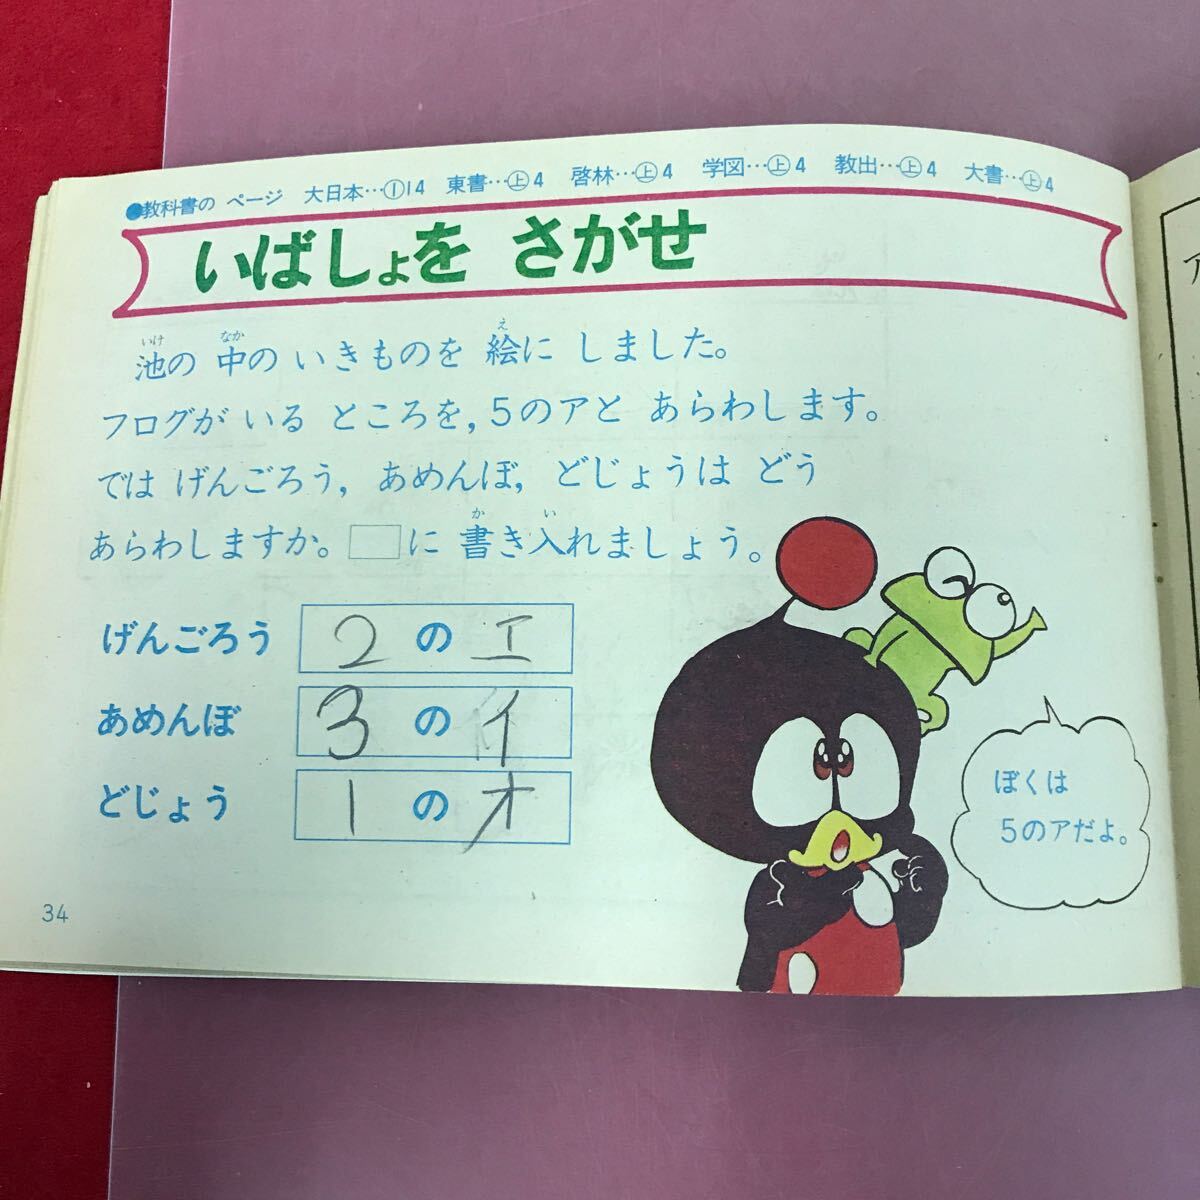 ●教科書の ページ 大日本…①14 東書…㊤4 啓林…㊤4 学図…㊤4 教出…㊤4 大書…㊤4
いばしょを さがせ
池の 中の いきものを 絵に しました。
いけ なか え
フログが いる ところを,5のアと あらわします。
では げんごろう, あめんぼ, どじょうは どう
あらわしますか。□に 書き入れましょう。
か い
げんごろう 2 の エ
あめんぼ 3 の イ
どじょう 1 の オ
ぼくは
5のアだよ。
34